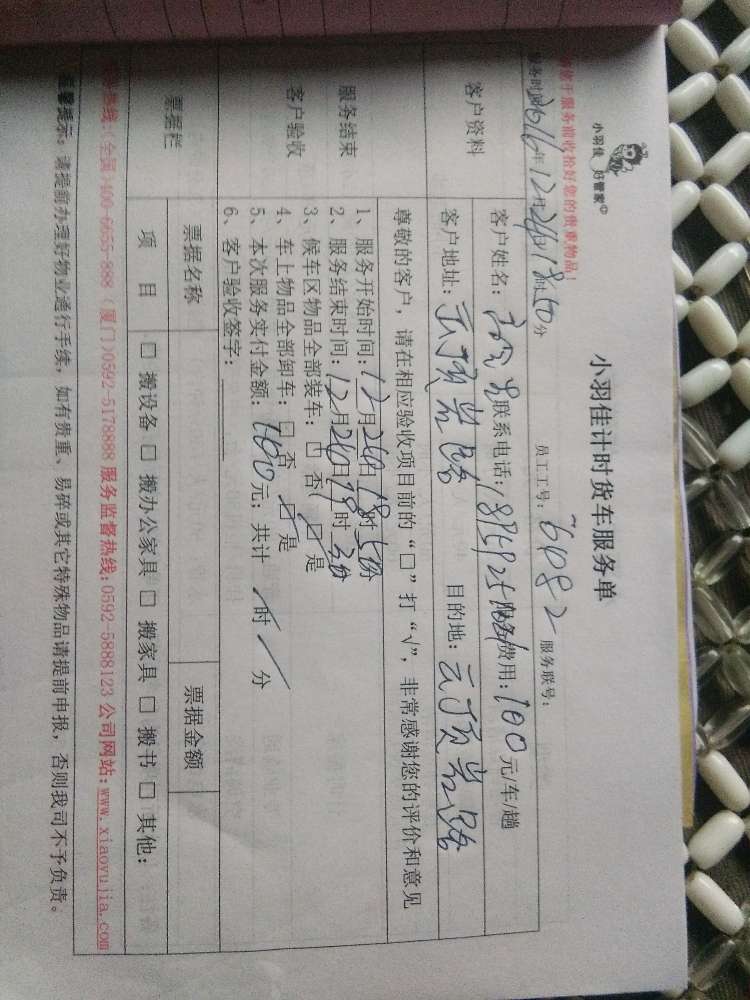 小羽佳 好管家
小羽佳计时货车服务单
于服务前收拾好您的贵重物品!
服务时间2016年12月26日18时50分 员工工号: 6082 服务联号:
客户资料
客户姓名: 联系电话: 服务费用: 100元/车/趟
客户地址: 云顶岩路 目的地: 云顶岩路
尊敬的客户, 请在相应验收项目前的“□”打“√”, 非常感谢您的评价和意见
服务结束
客户验收
1、服务开始时间: 12月26日18时50分
2、服务结束时间: 12月26日19时 分
3、候车区物品全部装车: □ 否 □ 是
4、车上物品全部卸车: □ 否 □ 是
5、本次服务实付金额: 100元; 共计 时 分
6、客户验收签字:
票据栏
票据名称 票据金额
项 目 □ 搬设备 □ 搬办公家具 □ 搬家具 □ 搬书 □ 其他:
热线:(全国)400-6655-888 (厦门)0592-5178888 服务监督热线:0592-5888123 公司网站:www.xiaoyujia.com
温馨提示: 请提前办理好物业通行手续, 如有贵重、易碎或其它特殊物品请提前申报, 否则我司不予负责。